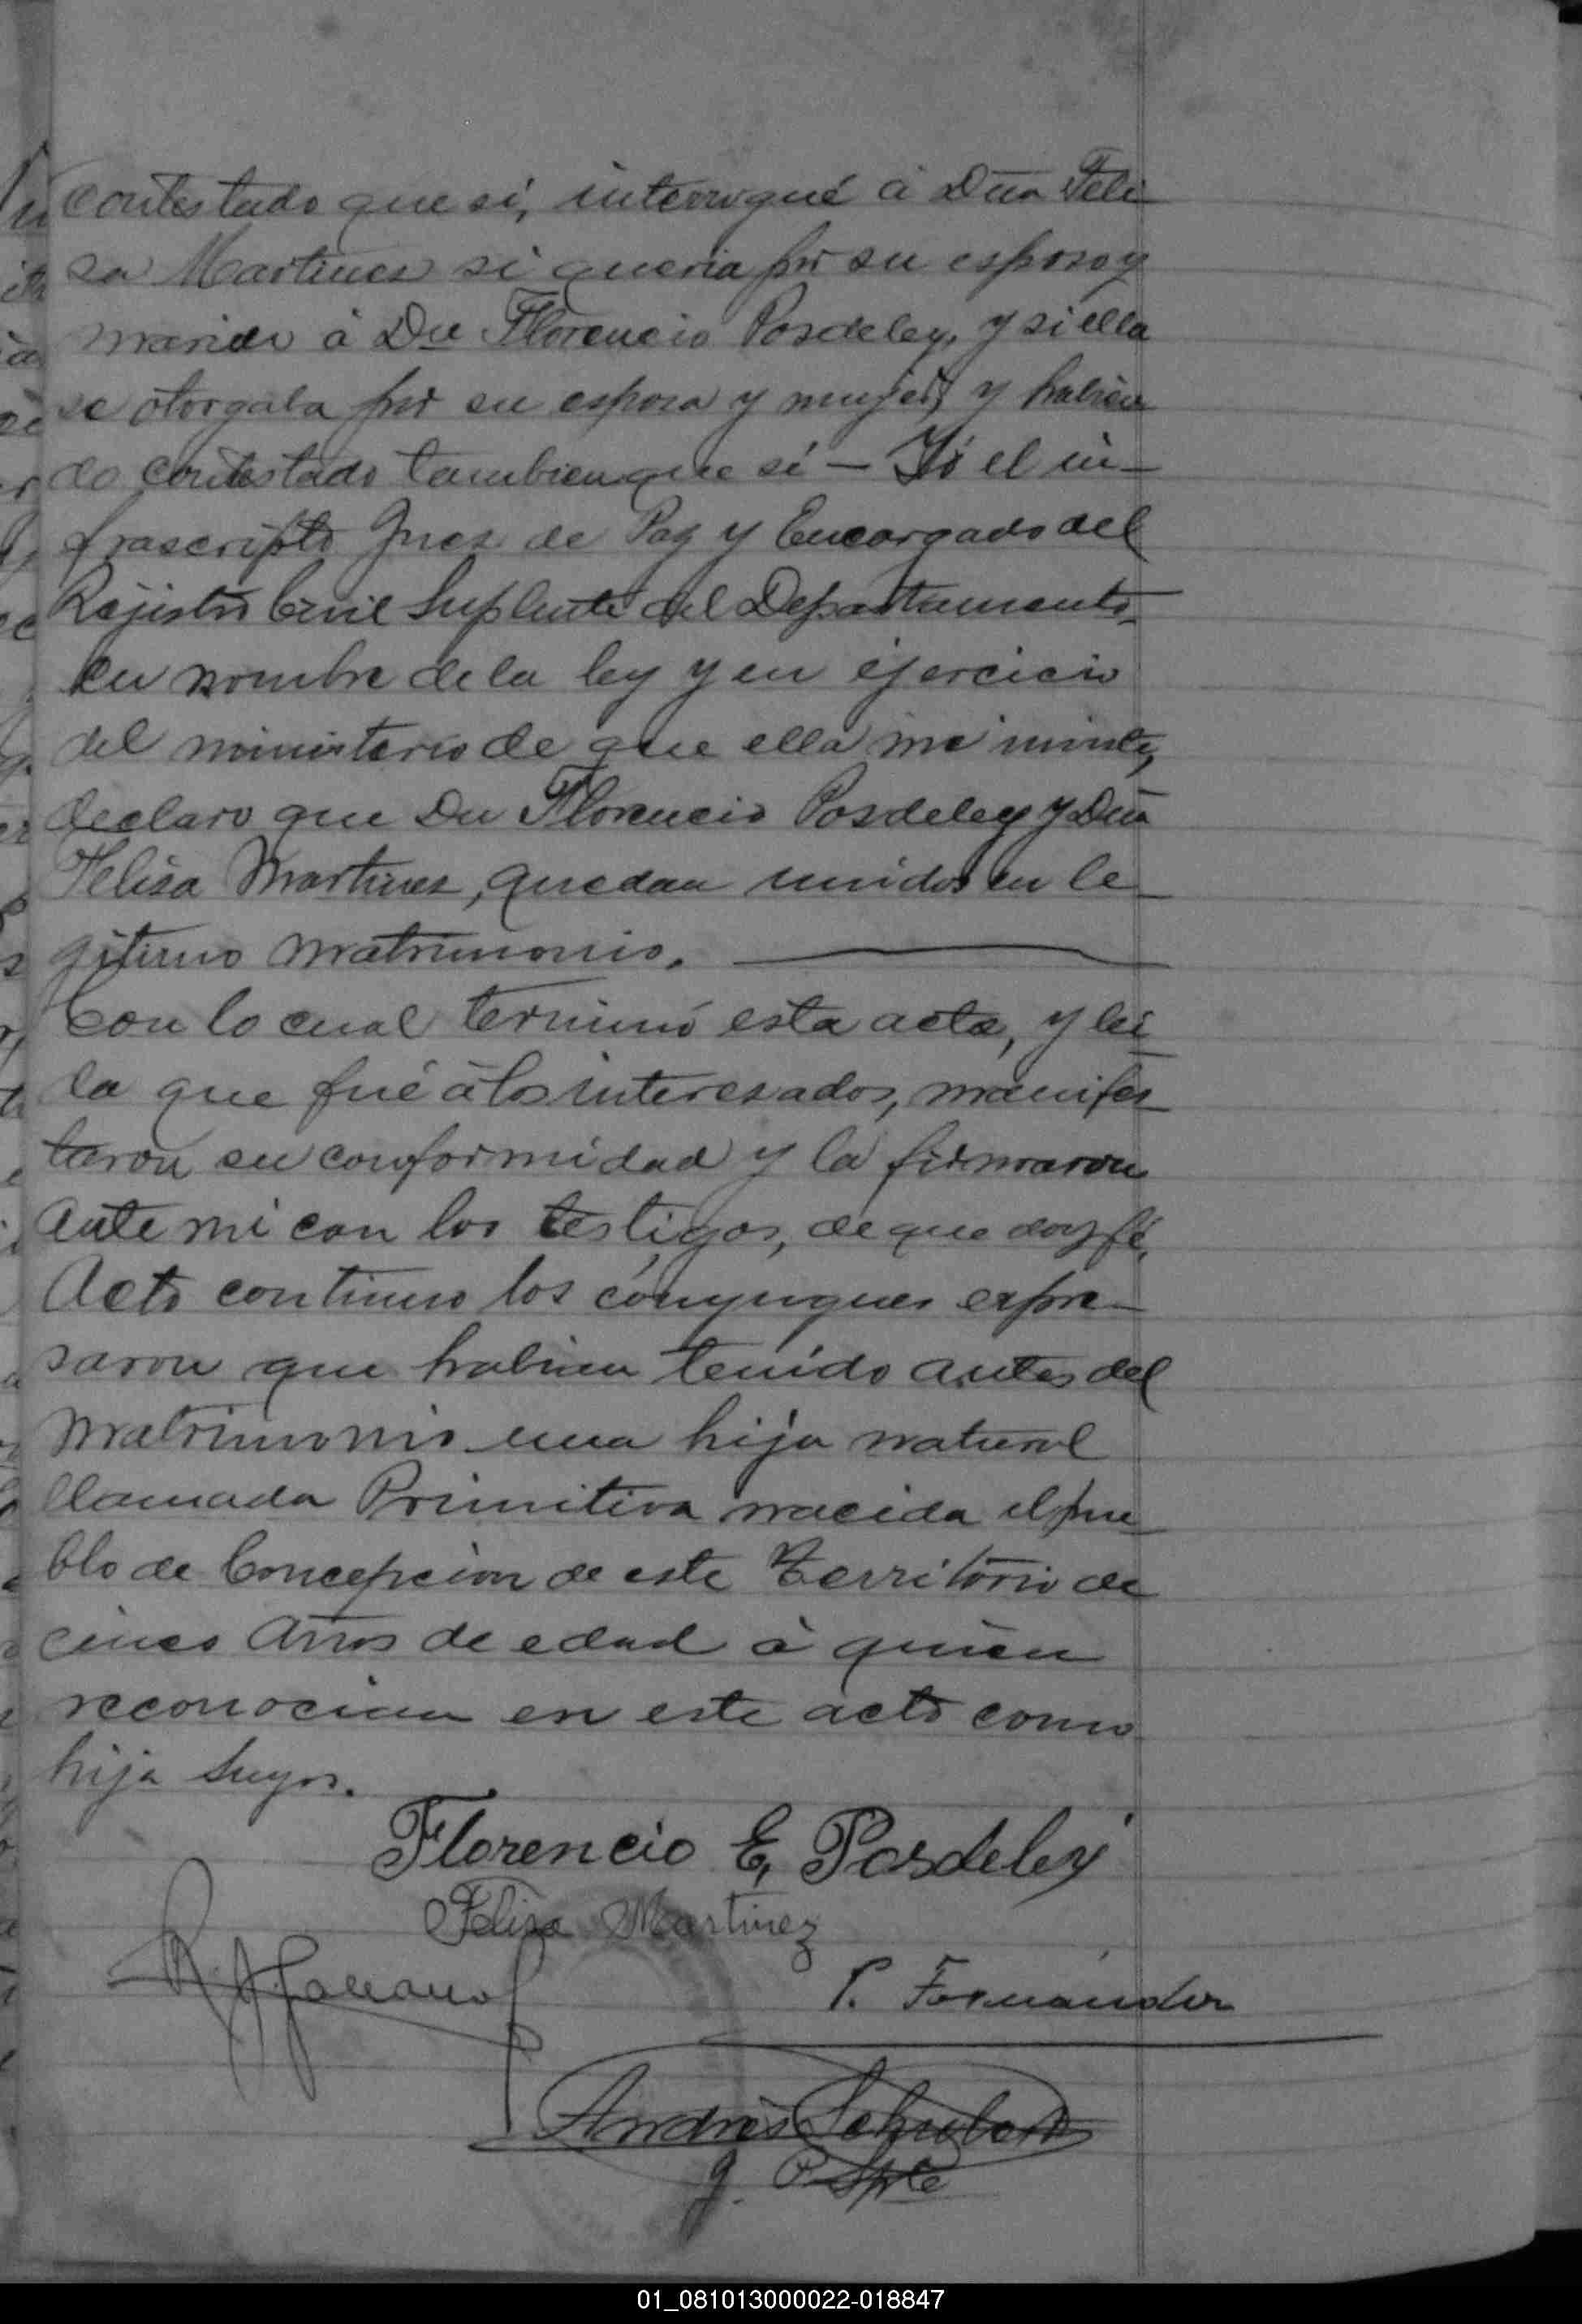 contestado que sí, interrogué á Dña Feli
sa Martinez si queria por su esposo y
marido á Dn Florencio Posdeley, y si ella
se otorgaba por su esposa y mujer, y habien
do contestado tambien que sí — Yó el in-
frascripto Juez de Paz y Encargado del
Rejistro Civil Suplente del Departamento,
en nombre de la ley y en ejercicio
del ministerio de que ella me inviste,
declaro que Dn Florencio Posdeley y Dña
Felisa Martinez, quedan unidos en le-
gitimo matrimonio.
Con lo cual terminó esta acta, y lei
da que fué á los interesados, manifes-
taron su conformidad y la firmaron
ante mi con los testigos, de que doy fé,
Acto continuo los cónyugues expre-
saron que habian tenido antes del
matrimonio una hija natural
llamada Primitiva nacida el pue-
blo de Concepcion de este Territorio de
cinco años de edad á quien
reconocian en este acto como
hija suyos.
Florencio E, Posdeley
Felisa Martinez
P. Fernández
Andrés Schubert
J. P. Splte
01_081013000022-018847